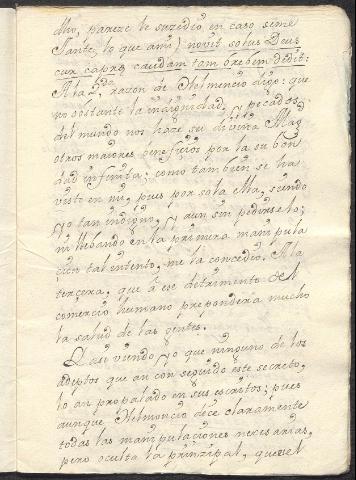 Mtro, pareze le suzedio en caso seme
Jante, lo que a mi) novit solus Deus
cur capris caudam tam brebem dedit.
A la 2.da razon de Helmencio digo: que
no obstante la indignidad, y pecados
del mundo nos haze su divina Mag.
otros maiores beneficios por la su bon
dad infinita: como tambien se ha
visto en mi, pues por sola ella, siendo
yo tan indigno, y aun sin pedirselo;
ni llebando en la primera manipula
cion tal intento, me la concedio. A la
tercera, que à ese detrimento del
comercio humano prepondera mucho
la salud de las gentes.
Qasi viendo yo que ninguno de los
adeptos que an conseguido este secreto,
lo an propalado en sus escritos; pues
aunque Helmoncio dece claramente
todas las manipulaciones necesarias,
pero oculta la prinzipal, que es el